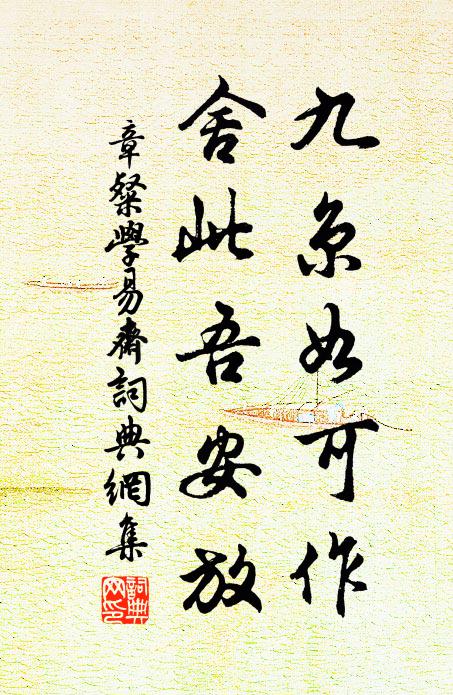 九京如可作
舍此吾安放
章粲學易齋詞典網集
詞典
網印